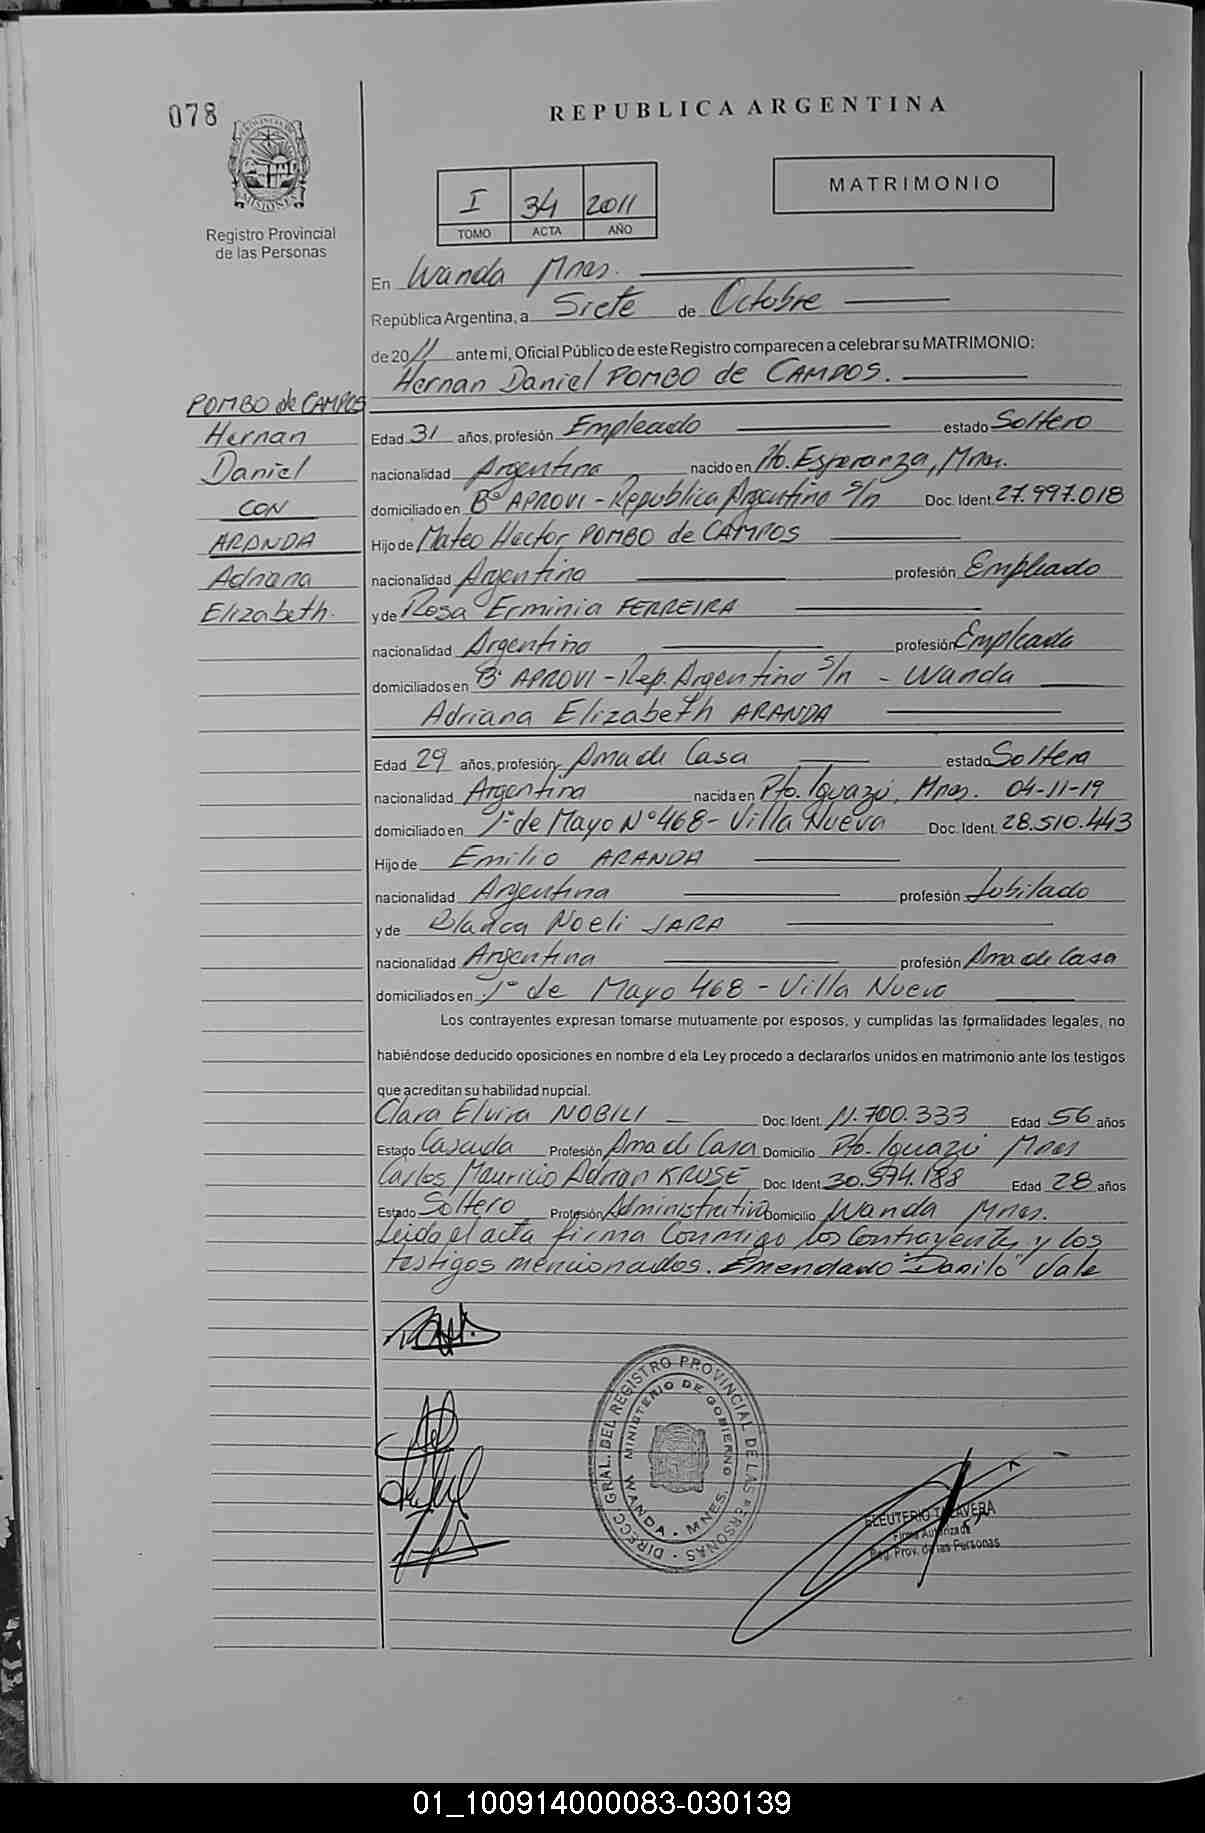 078
REPUBLICA ARGENTINA
PROVINCIA DE
MISIONES
Registro Provincial
de las Personas
I 34 2011
TOMO ACTA AÑO
MATRIMONIO
En Wanda Mnes.
República Argentina, a Siete de Octubre
de 2011 ante mi, Oficial Público de este Registro comparecen a celebrar su MATRIMONIO:
Hernan Daniel POMBO de CAMPOS.
POMBO de CAMPOS
Hernan
Daniel
CON
ARANDA
Adriana
Elizabeth.
Edad 31 años, profesión Empleado estado Soltero
nacionalidad Argentina nacido en Pto. Esperanza, Mnes.
domiciliado en B° APROVI - Republica Argentina s/n Doc. Ident. 27.997.018
Hijo de Mateo Hector POMBO de CAMPOS
nacionalidad Argentino profesión Empleado
y de Rosa Erminia FERREIRA
nacionalidad Argentina profesión Empleada
domiciliados en B° APROVI - Rep. Argentina s/n - Wanda
Adriana Elizabeth ARANDA
Edad 29 años, profesión Ama de Casa estado Soltera
nacionalidad Argentina nacida en Pto. Iguazú, Mnes. 04-11-19
domiciliado en 1° de Mayo N° 468 - Villa Nueva Doc. Ident. 28.510.443
Hijo de Emilio ARANDA
nacionalidad Argentina profesión Jubilado
y de Blanca Noeli JARA
nacionalidad Argentina profesión Ama de Casa
domiciliados en 1° de Mayo 468 - Villa Nueva
Los contrayentes expresan tomarse mutuamente por esposos, y cumplidas las formalidades legales, no
habiéndose deducido oposiciones en nombre d ela Ley procedo a declararlos unidos en matrimonio ante los testigos
que acreditan su habilidad nupcial.
Clara Elvira NOBILI Doc. Ident. 11.700.333 Edad 56 años
Estado Casada Profesión Ama de Casa Domicilio Pto. Iguazú Mnes
Carlos Mauricio Adrian KRUSE Doc. Ident. 30.574.188 Edad 28 años
Estado Soltero Profesión Administrativo Domicilio Wanda Mnes.
Leida el acta firma Conmigo los Contrayentes y los
testigos mencionados. Emendado "Danilo" Vale
DIRECC. GRAL. DEL REGISTRO PROVINCIAL DE LAS PERSONAS
MINISTERIO DE GOBIERNO
WANDA - MNES.
ELEUTERIO TALAVERA
Firma Autorizada
Reg. Prov. de las Personas
01_100914000083-030139